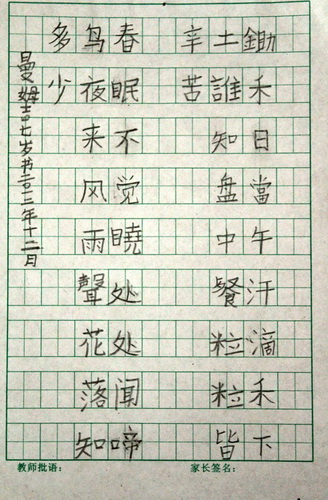 鋤禾日當午汗滴禾下
土誰知盘中餐粒粒皆
辛苦
春眠不觉曉处处闻啼
鸟夜来风雨聲花落知
多少
曼姆 七岁书 年十二月
教师批语： 家长签名：